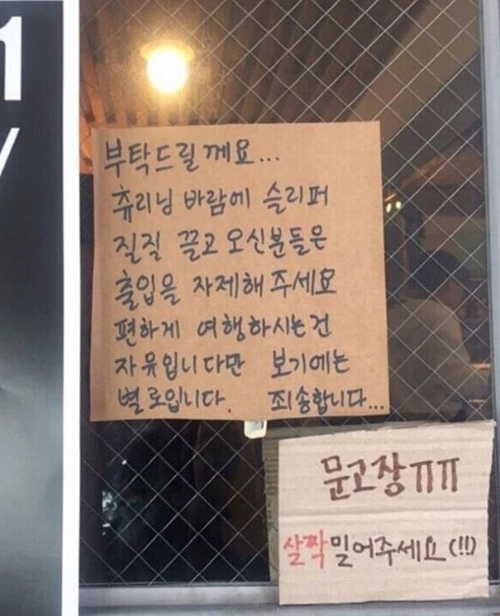 1
/
부탁드릴께요...
츄리닝 바람에 슬리퍼
질질 끌고 오신분들은
출입을 자제해 주세요
편하게 여행하시는건
자유입니다만 보기에는
별로입니다. 죄송합니다...
문고장ㅠㅠ
살짝밀어주세요(!!)